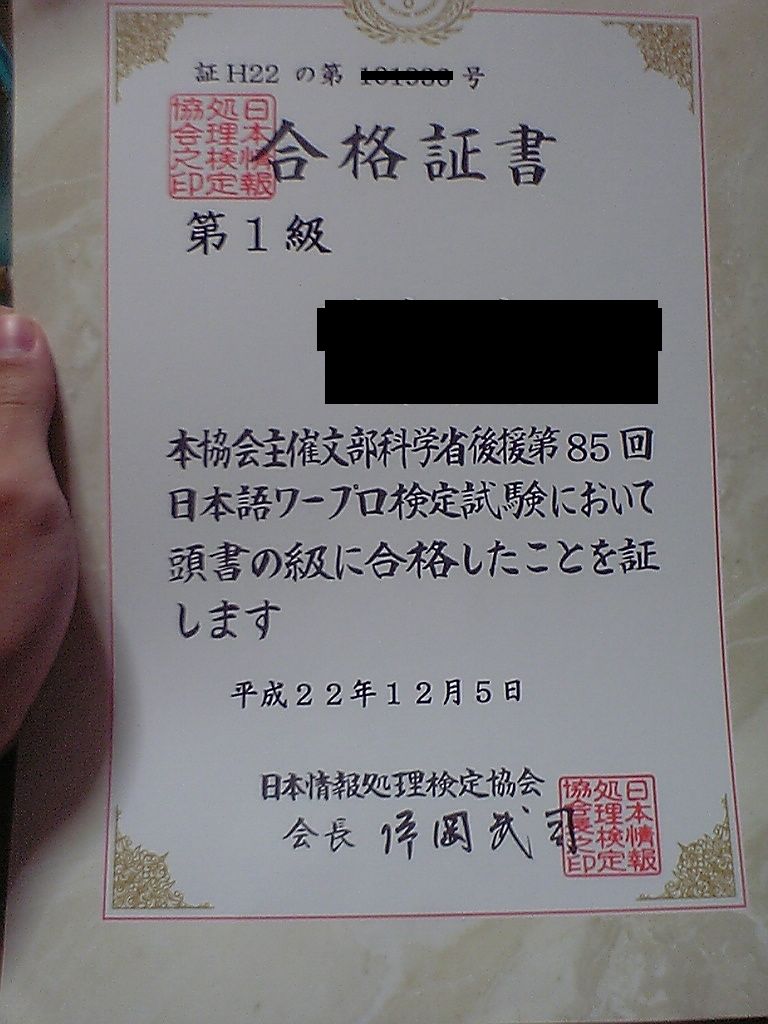 証H22 の第 号
日本情報
処理検定
協会之印
合格証書
第1級
本協会主催文部科学省後援第85回
日本語ワープロ検定試験において
頭書の級に合格したことを証
します
平成22年12月5日
日本情報処理検定協会
会長 岡武司
日本情報
処理検定
協会長之印